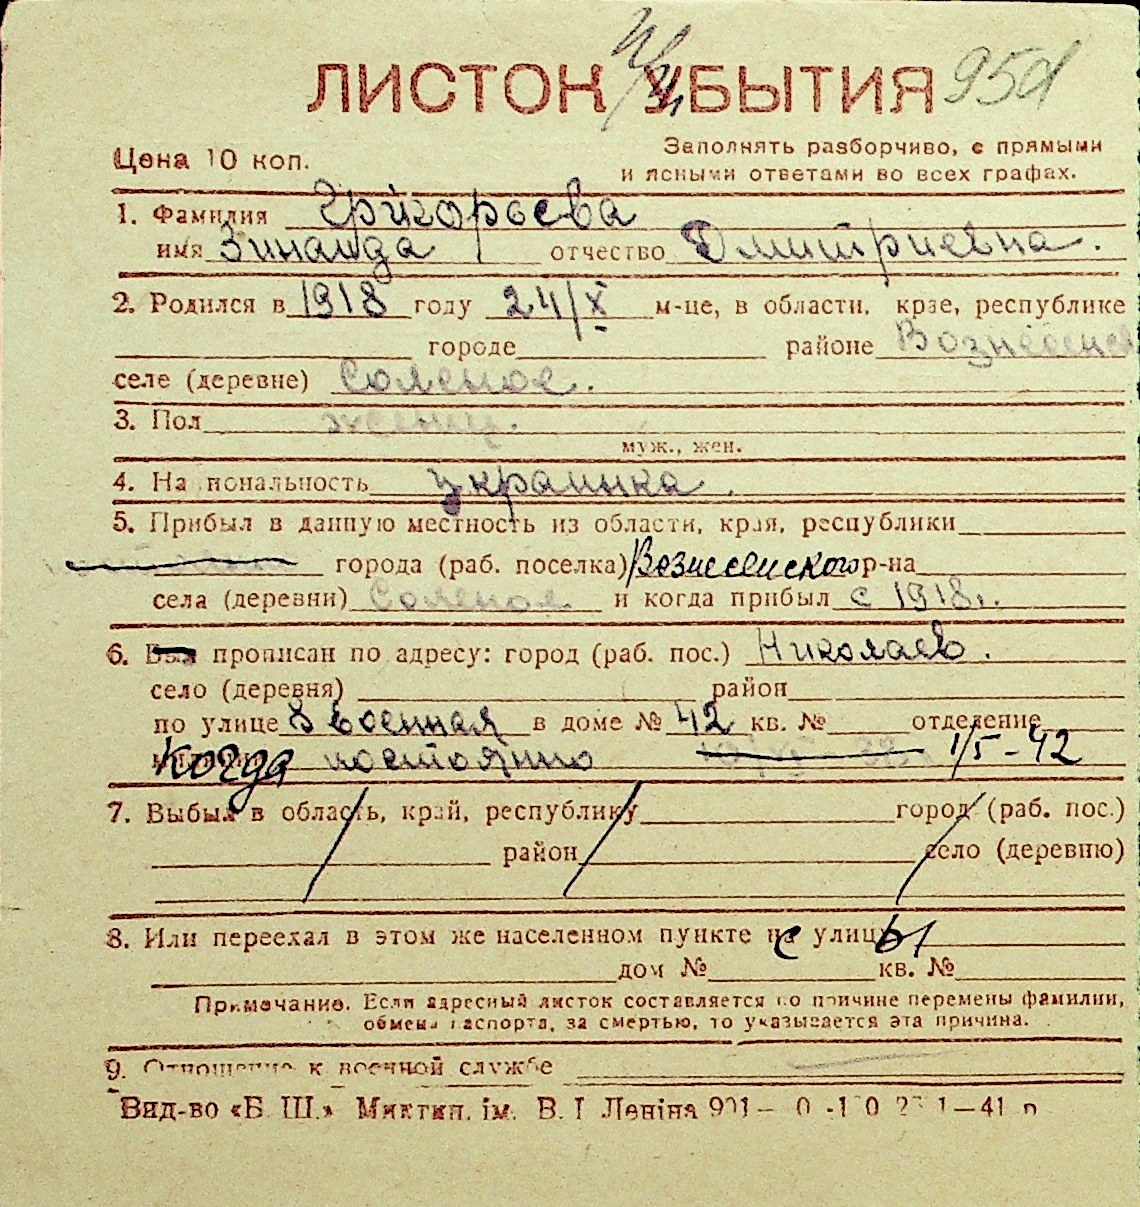 ЛИСТОК УБЫТИЯ 95
Цена 10 коп.
Заполнять разборчиво, с прямыми
и ясными ответами во всех графах.
1. Фамилия Григорьева
имя Зинаида отчество Дмитриевна.
2. Родился в 1918 году 24/X м-це, в области, крае, республике
городе районе Вознесенск
селе (деревне) Соленое.
3. Пол женщ.
муж., жен.
4. Национальность украинка.
5. Прибыл в данную местность из области, края, республики
города (раб. поселка) Вознесенского р-на
села (деревни) Соленое и когда прибыл с 1918г.
6. Был прописан по адресу: город (раб. пос.) Николаев.
село (деревня) район
по улице 8 военная в доме № 42 кв. № отделение
когда постоянно 1/5-42
7. Выбыл в область, край, республику город (раб. пос.)
район село (деревню)
8. Или переехал в этом же населенном пункте с улицы
дом № кв. №
Примечание. Если адресный листок составляется по причине перемены фамилии,
обмена паспорта, за смертью, то указывается эта причина.
9. Отношение к военной службе
Вид-во «Б. Ш.» Миктип. ім. В. І Леніна 1—41 р